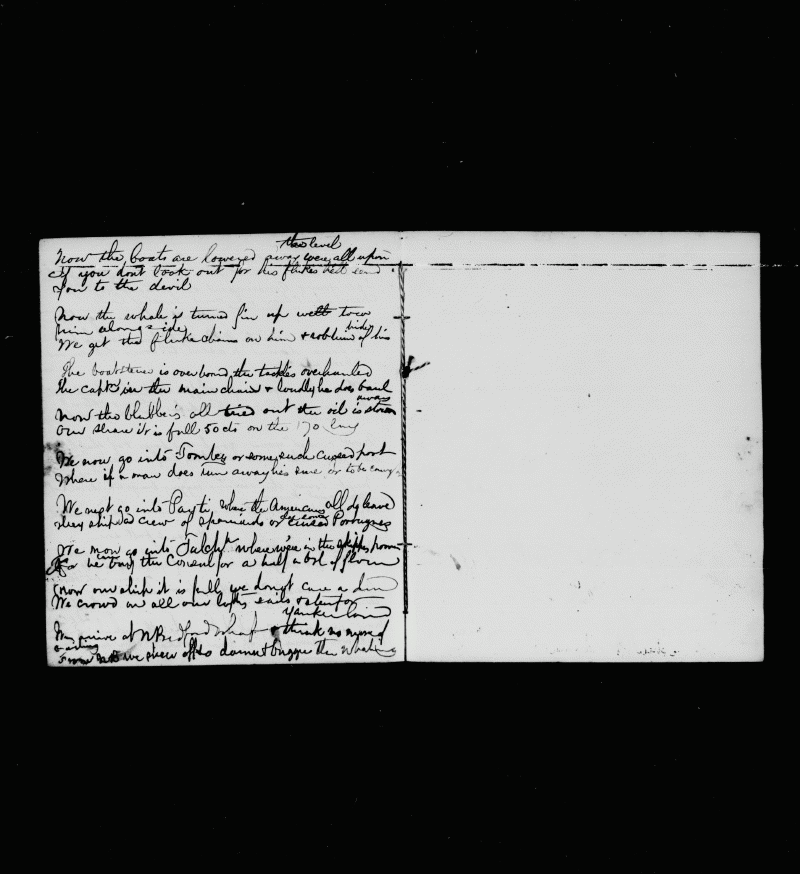 the level
Now the boats are lowered away were all upon
If you dont look out for his flukes hell send
you to the devil
Now the whale is turned fin up well tow
him alongside
We get the fluke chains on him & rob him of his hide
The boatsteerer is overboard, the tackles overhauled
the capt in the main chains & loudly he does bawl
away
Now the blubbers all tried out the oil is stowed
Our share it is full 50 cts on the 170 lay
We now go into Tombez or some such cussed port
Where if a man does run away hes sure to be
We next go into Payti, where the Americans all dy leave
ship a crew of Spaniards or Portugees
We now go into Talch where we're in the skippers
For he the Consul for a half a bbl of flour
Now our ship it is full, we dont care a
We crowd on all our lofty sails & stand for
Yankee land
We arrive at N Bedford Wharf & think no more of
From we sheer off & damn & bugger the whaling